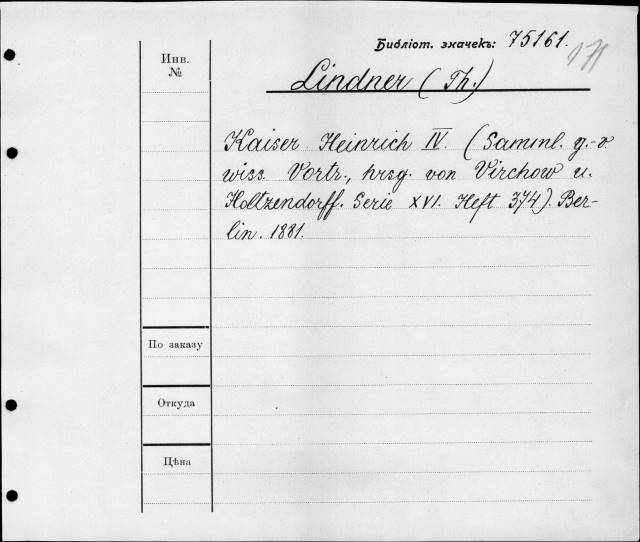 Библіот. значекъ: 75161.
Инв.
№
Lindner (Th.)
Kaiser Heinrich IV. (Samml. g.-v.
wiss. Vortr., hrsg. von Virchow u.
Holtzendorff. Serie XVI. Heft 374). Ber-
lin. 1881.
По заказу
Откуда
Цѣна